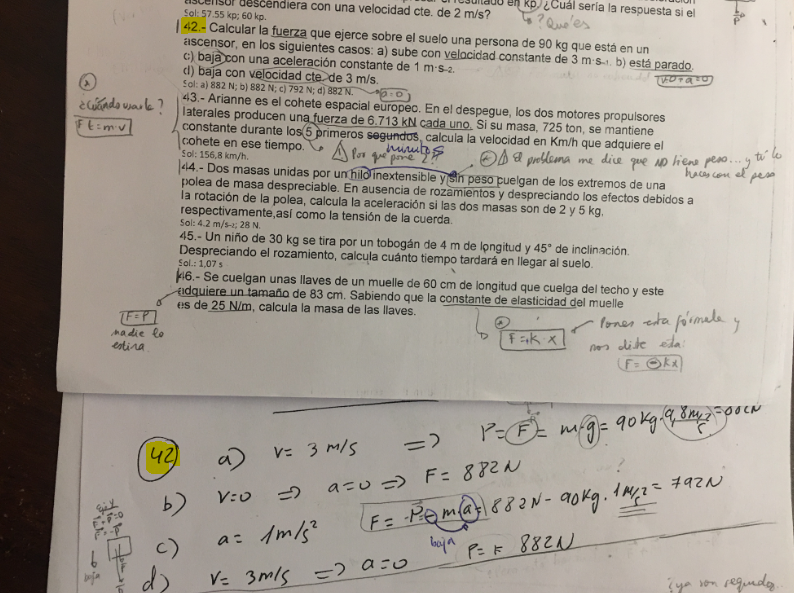 ascensor descendiera con una velocidad cte. de 2 m/s?
Sol: 57.55 kp; 60 kp.
¿Cuál sería la respuesta si el
? Qué es
42.- Calcular la fuerza que ejerce sobre el suelo una persona de 90 kg que está en un
ascensor, en los siguientes casos: a) sube con velocidad constante de 3 m·s-1. b) está parado.
c) baja con una aceleración constante de 1 m·s-2.
v=0 → a=0
d) baja con velocidad cte. de 3 m/s.
Sol: a) 882 N; b) 882 N; c) 792 N; d) 882 N.
a=0
43.- Arianne es el cohete espacial europeo. En el despegue, los dos motores propulsores
laterales producen una fuerza de 6.713 kN cada uno. Si su masa, 725 ton, se mantiene
constante durante los 5 primeros segundos, calcula la velocidad en Km/h que adquiere el
minutos
cohete en ese tiempo.
Por que pone 2?
Sol: 156,8 km/h.
¿Cuándo usarla?
F t = m·v
El problema me dice que NO tiene peso... y tú lo
haces con el peso
44.- Dos masas unidas por un hilo inextensible y sin peso cuelgan de los extremos de una
polea de masa despreciable. En ausencia de rozamientos y despreciando los efectos debidos a
la rotación de la polea, calcula la aceleración si las dos masas son de 2 y 5 kg,
respectivamente,así como la tensión de la cuerda.
Sol: 4.2 m/s-2; 28 N.
45.- Un niño de 30 kg se tira por un tobogán de 4 m de longitud y 45° de inclinación.
Despreciando el rozamiento, calcula cuánto tiempo tardará en llegar al suelo.
Sol.: 1,07 s
46.- Se cuelgan unas llaves de un muelle de 60 cm de longitud que cuelga del techo y este
adquiere un tamaño de 83 cm. Sabiendo que la constante de elasticidad del muelle
es de 25 N/m, calcula la masa de las llaves.
F=P
nadie lo
estira
F=k·x
Pones esta fórmula y
nos diste esta:
F= -kx
42 a) v= 3 m/s => P=F= m·g= 90 Kg·9,8 m/s2=
b) v=0 => a=0 => F= 882N
c) a= 1m/s² F= P-m·a= 882N- 90Kg· 1m/s2= 792N
baja
d) v= 3m/s => a=0 P=F 882N
baja
¿ya son segundos